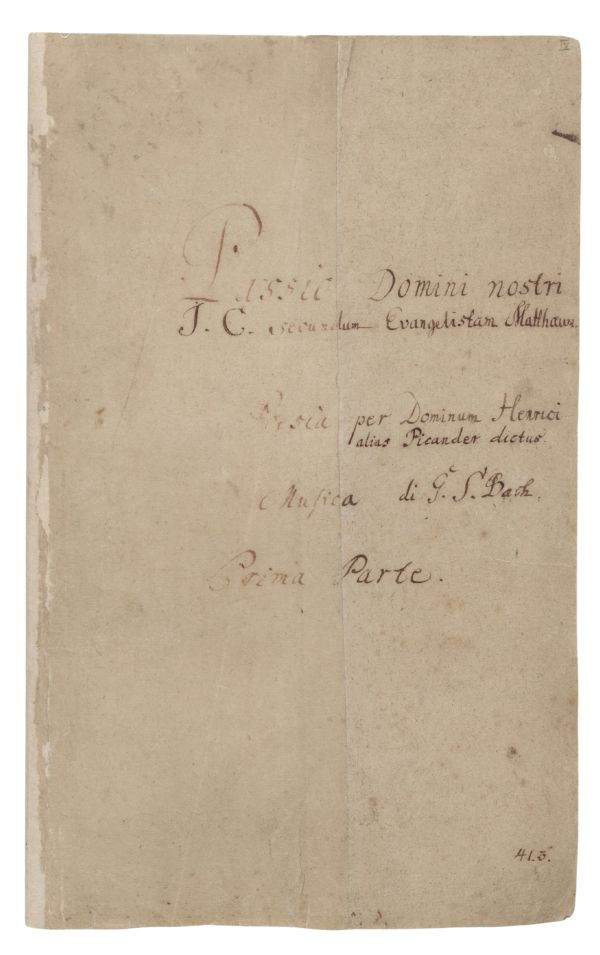 IV
Passio Domini nostri
J. C. secundum Evangelistam Matthaeum
Poesia per Dominum Henrici
alias Picander dictus
Musica di G. S. Bach.
Prima Parte.
41.5.